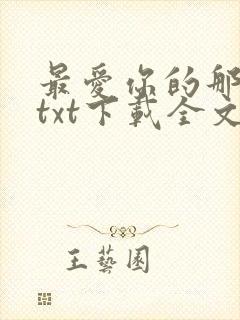 最愛你的那
txt下載全文
王藝園